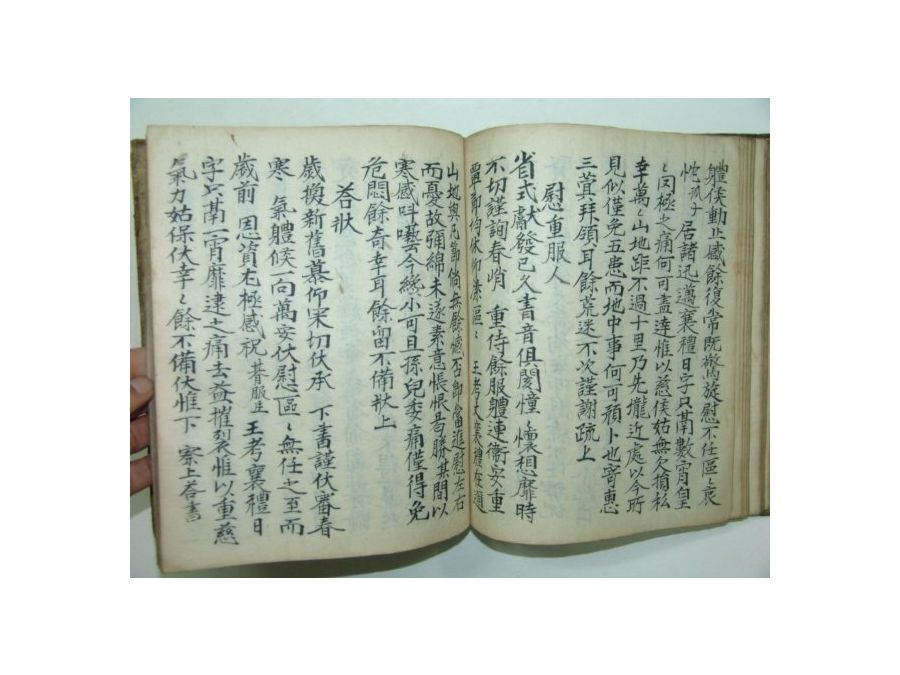 軆候動止感餘復常旣驚旋慰不任區〻哀
忱孤子居諸迅邁襄禮日字只某數宵皇
〻罔極之痛何可盡達惟以慈候姑無欠損私
幸萬〻山地距不過十里乃先壠近處以今所
見似僅免五患而地中事何可預卜也寄惠
三蓂拜領耳餘荒迷不次謹謝疏上
慰重服人
省式獻發已久書音俱閡憧〻懷想靡時
不切謹詢春峭重侍餘服軆連衛安重
覃節均休仰溱區〻王考大襄禮在邇
山地與凡節倘無餘憾否卽當進慰左右
而憂故彌綿未遂素意悵恨曷勝某間以
寒感呌囈今纔小可且孫兒委痛僅得免
危悶餘奇幸耳餘留不備狀上
答狀
歲換新舊慕仰采切伏承下書謹伏審春
寒氣軆候一向萬安伏慰區〻無任之至而
歲前恩資尤極感祝朞服生王考襄禮日
字只鬲一宵靡逮之痛去益摧裂惟以重慈
氣力姑保伏幸〻餘不備伏惟下察上答書